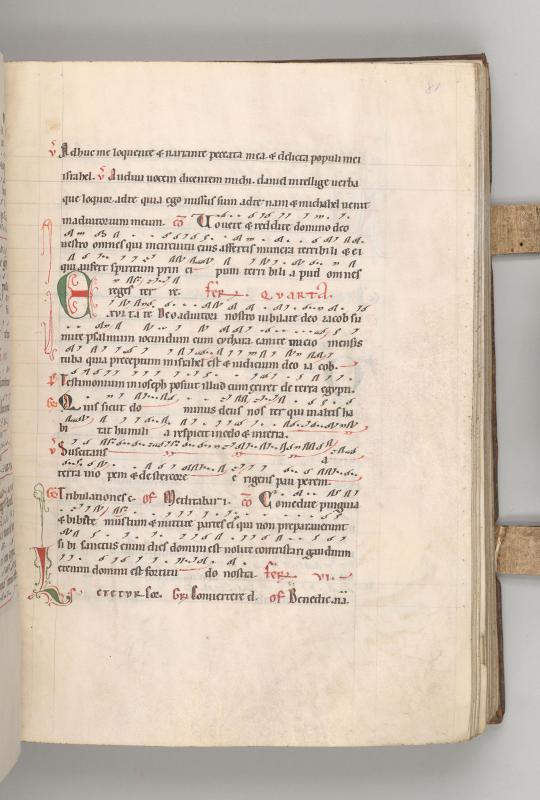 81
v Adhuc me loquente & narrante peccata mea & delicta populi mei
israhel. v Audiui uocem dicentem michi. daniel intellige uerba
que loquor adte quia ego missus sum adte nam & michahel uenit
inadiutorium meum. co Uouete & reddite domino deo
uestro omnes qui incircuitu eius affertis munera terribili & ei
qui aufert spiritum prin ci pum terri bili a pud omnes
reges ter re. fer QUARTA.
E xul ta te Deo adiutori nostro iubilate deo iacob su
mite psalmum iocundum cum cythara canite initio mensis
tuba quia preceptum inisrahel est & iudicium deo ia cob.
Testimonium inioseph posuit illud cum exiret de terra egypti.
Quis sicut do minus deus nos ter qui inaltis ha
bi tat humili a respicit incelo & interra.
v Suscitans a
terra ino pem & de stercore e rigens pau perem.
Tribulationes c. of Meditabor i. co Comedite pinguia
& bibite mulsum & mittite partes ei qui non preparauerunt
si bi sanctus enim dies domini est nolite contristari gaudium
etenim domini est fortitu do nostra. fer VI.
L etetur cor. Gr Conuertere d. of Benedic. aia.